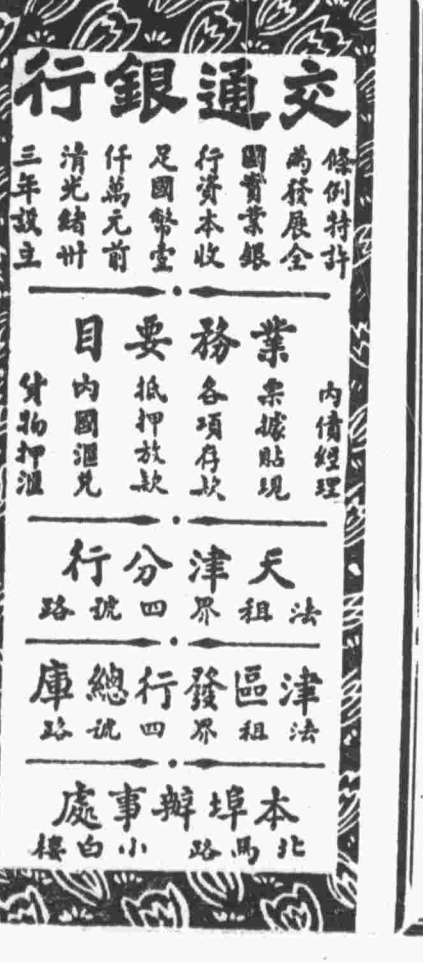 交通銀行
條例特許
為發展全
國實業銀
行資本收
足國幣壹
仟萬元前
清光緒卅
三年設立
業務要目
內債經理
票據貼現
各項存款
抵押放款
內國滙兌
貨物押滙
天津分行
法租界四號路
津區發行總庫
法租界四號路
本埠辦事處
北馬路 小白樓